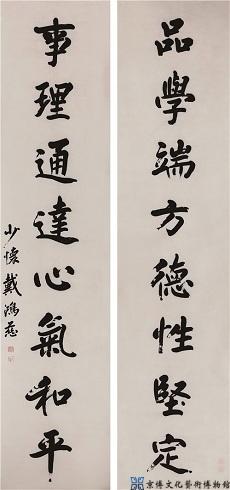 品學端方德性堅定
事理通達心氣和平
少懷戴鴻慈
京博文化藝術博物館